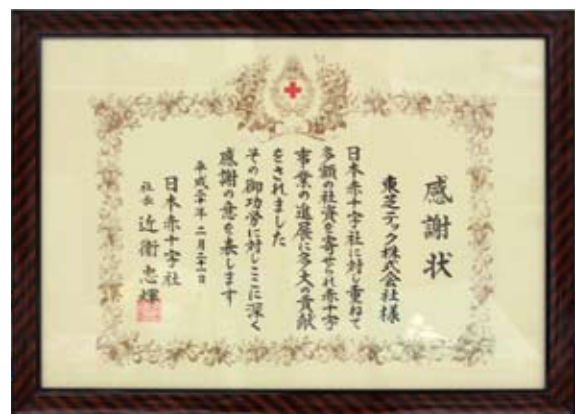 感謝状
東芝テック株式会社様
日本赤十字社に対し重ねて
多額の社資を寄せられ赤十字
事業の進展に多大の貢献
をされました
その御功労に対しここに深く
感謝の意を表します
平成二十年 二月二十一日
日本赤十字社
社長 近衞忠煇